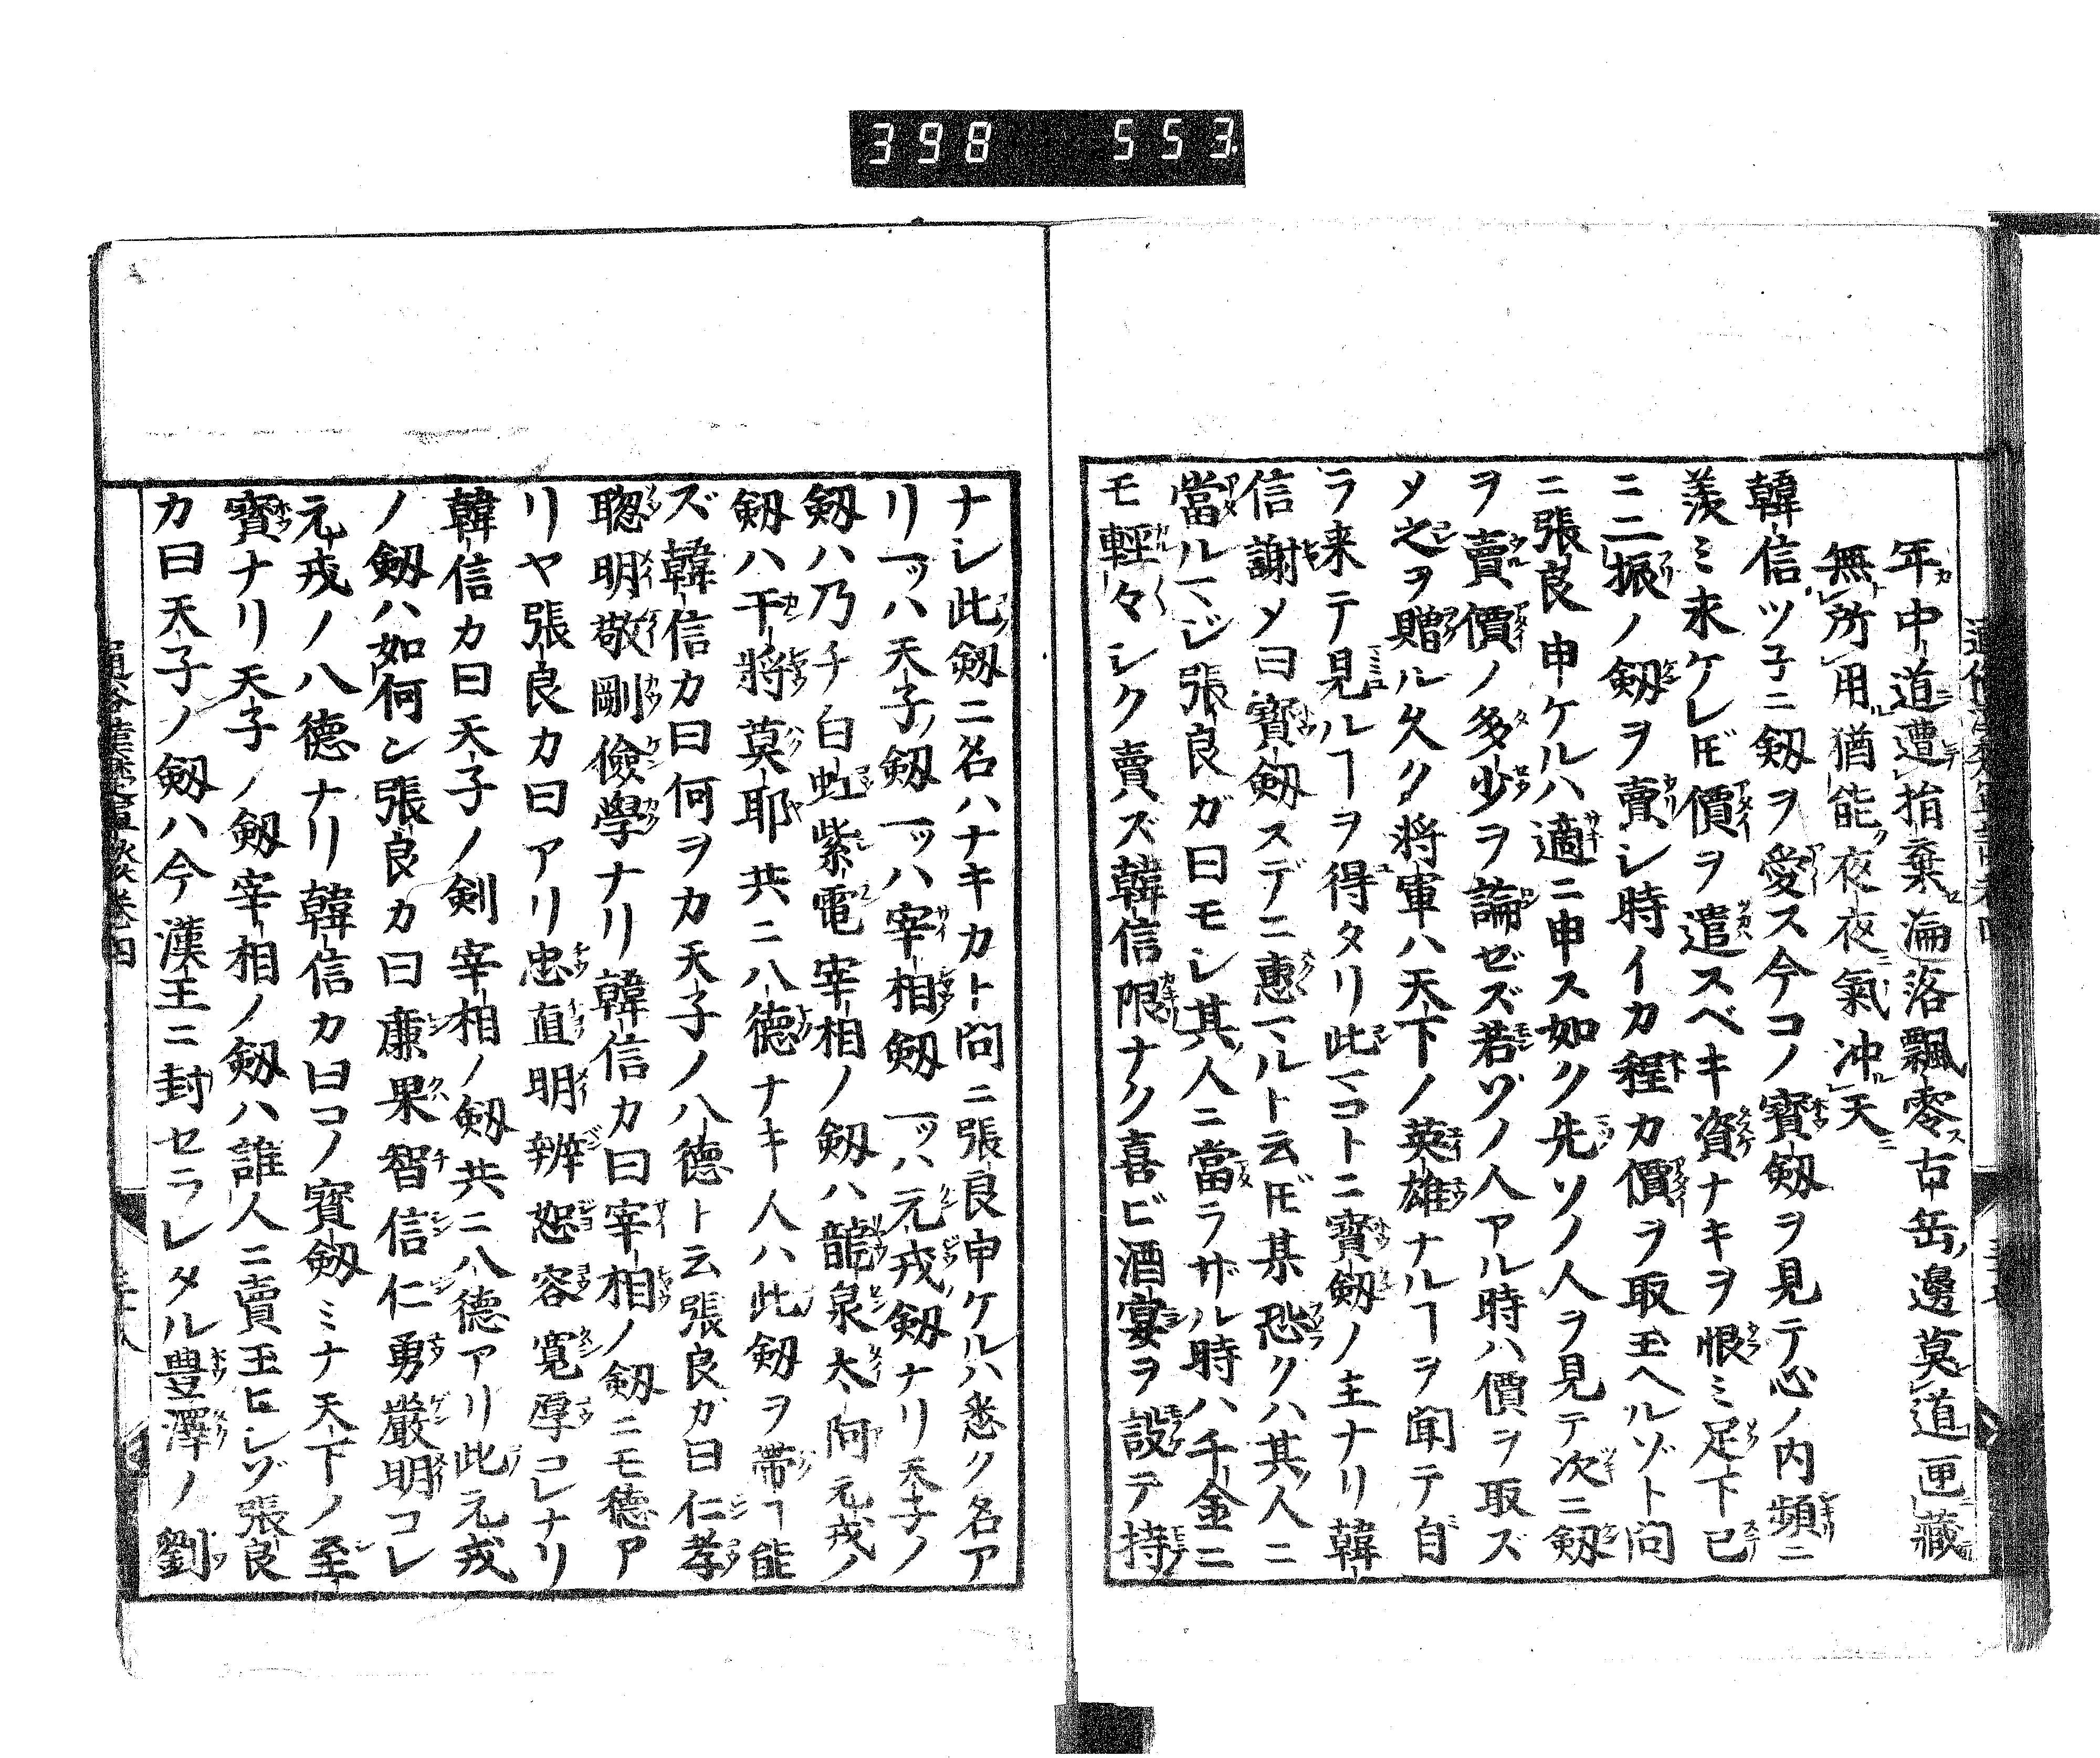 398 553
年中道遭捐棄淪落飄零古岳邊莫道匣藏
無所用猶能夜夜氣冲天
韓信ツ子ニ劔ヲ愛ス今コノ寳劔ヲ見テ心ノ内頻ニ
羨ミ求ケレ𪜈價ヲ遣スベキ資ナキヲ恨ミ足下已
ニ二振ノ劔ヲ賣シ時イカ程カ價ヲ取玉ヘルゾト問
ニ張良申ケルハ適ニ申ス如ク先ソノ人ヲ見テ次ニ劔
ヲ賣價ノ多少ヲ論ゼズ若ソノ人アル時ハ價ヲ取ズ
メ之ヲ贈ル久ク将軍ハ天下ノ英雄ナルヿヲ聞テ自
ラ来テ見ルヿヲ得タリ此マコトニ寳劔ノ主ナリ韓
信謝メ曰寳劔スデニ惠マルト云𪜈某恐クハ其人ニ
當ルマジ張良ガ曰モシ其人ニ當ラザル時ハ千金ニ
モ輕々シク賣ズ韓信限ナク喜ビ酒宴ヲ設テ持
ナシ此劔ニ名ハナキカト問ニ張良申ケルハ悉ク名ア
リ一ツハ天子劔一ツハ宰相劔一ツハ元戎劔ナリ天子ノ
劔ハ乃チ白虹紫電宰相ノ劔ハ龍泉太阿元戎ノ
劔ハ干將莫耶共ニ八德ナキ人ハ此劔ヲ帶ヿ能
ズ韓信カ曰何ヲカ天子ノ八德ト云張良ガ曰仁孝
聰明敬剛儉學ナリ韓信カ曰宰相ノ劔ニモ德ア
リヤ張良カ曰アリ忠直明辨恕容寛厚コレナリ
韓信カ曰天子ノ剣宰相ノ劔共ニ八德アリ此元戎
ノ劔ハ如何ン張良カ曰廉果智信仁勇嚴明コレ
元戎ノ八德ナリ韓信カ曰コノ寳劔ミナ天下ノ至
寳ナリ天子ノ劔宰相ノ劔ハ誰人ニ賣玉ヒシゾ張良
カ曰天子ノ劔ハ今漢王ニ封セラレタル豊澤ノ劉